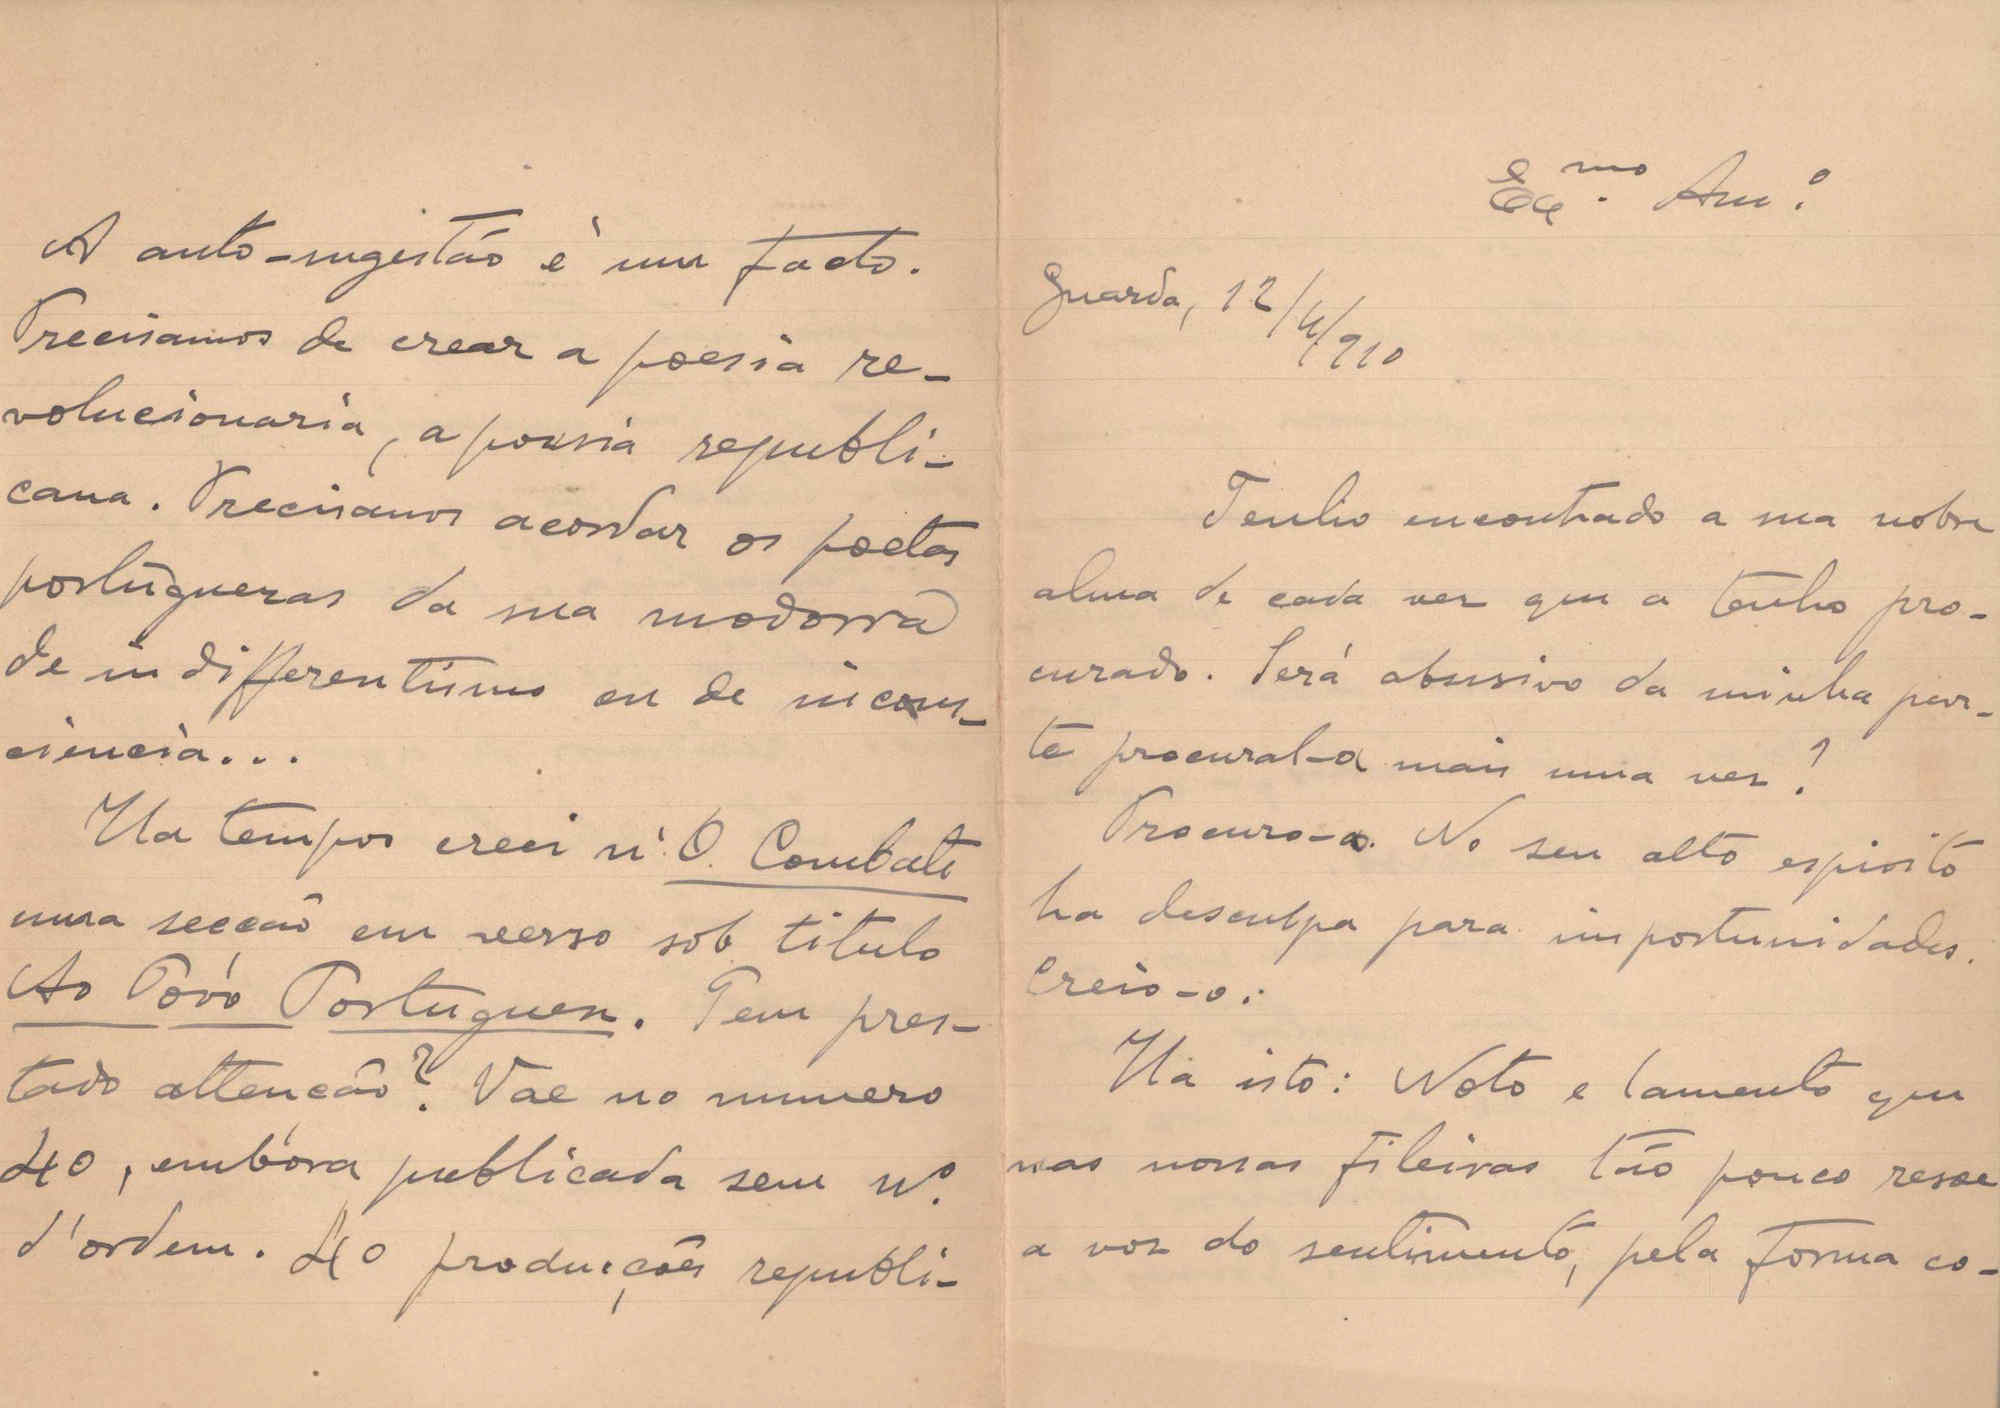 Ex.mo Am.º
Guarda, 12/4/910
Tenho encontrado a sua nobre
alma de cada vez que a tenho pro-
curado. Será abusivo da minha par-
te procural-a mais uma vez?
Procuro-a. No seu alto espirito
ha desculpa para importunidades.
Creio-o.
Ha isto: Noto e lamento que
nas nossas fileiras tão pouco resoe
a voz do sentimento, pela forma co-
A auto-sugestão è um facto.
Precisamos de crear a poesia re-
volucionaria, a poesia republi-
cana. Precisamos acordar os poetas
portuguezas da sua modorra
de indifferentismo ou de incons-
ciencia...
Ha tempos creei n'O Combate
uma secção em verso sob titulo
Ao Povo Portuguez. Tem pres-
tado attenção? Vae no numero
40, embóra publicada sem n.º
d'ordem. 40 producções republi-